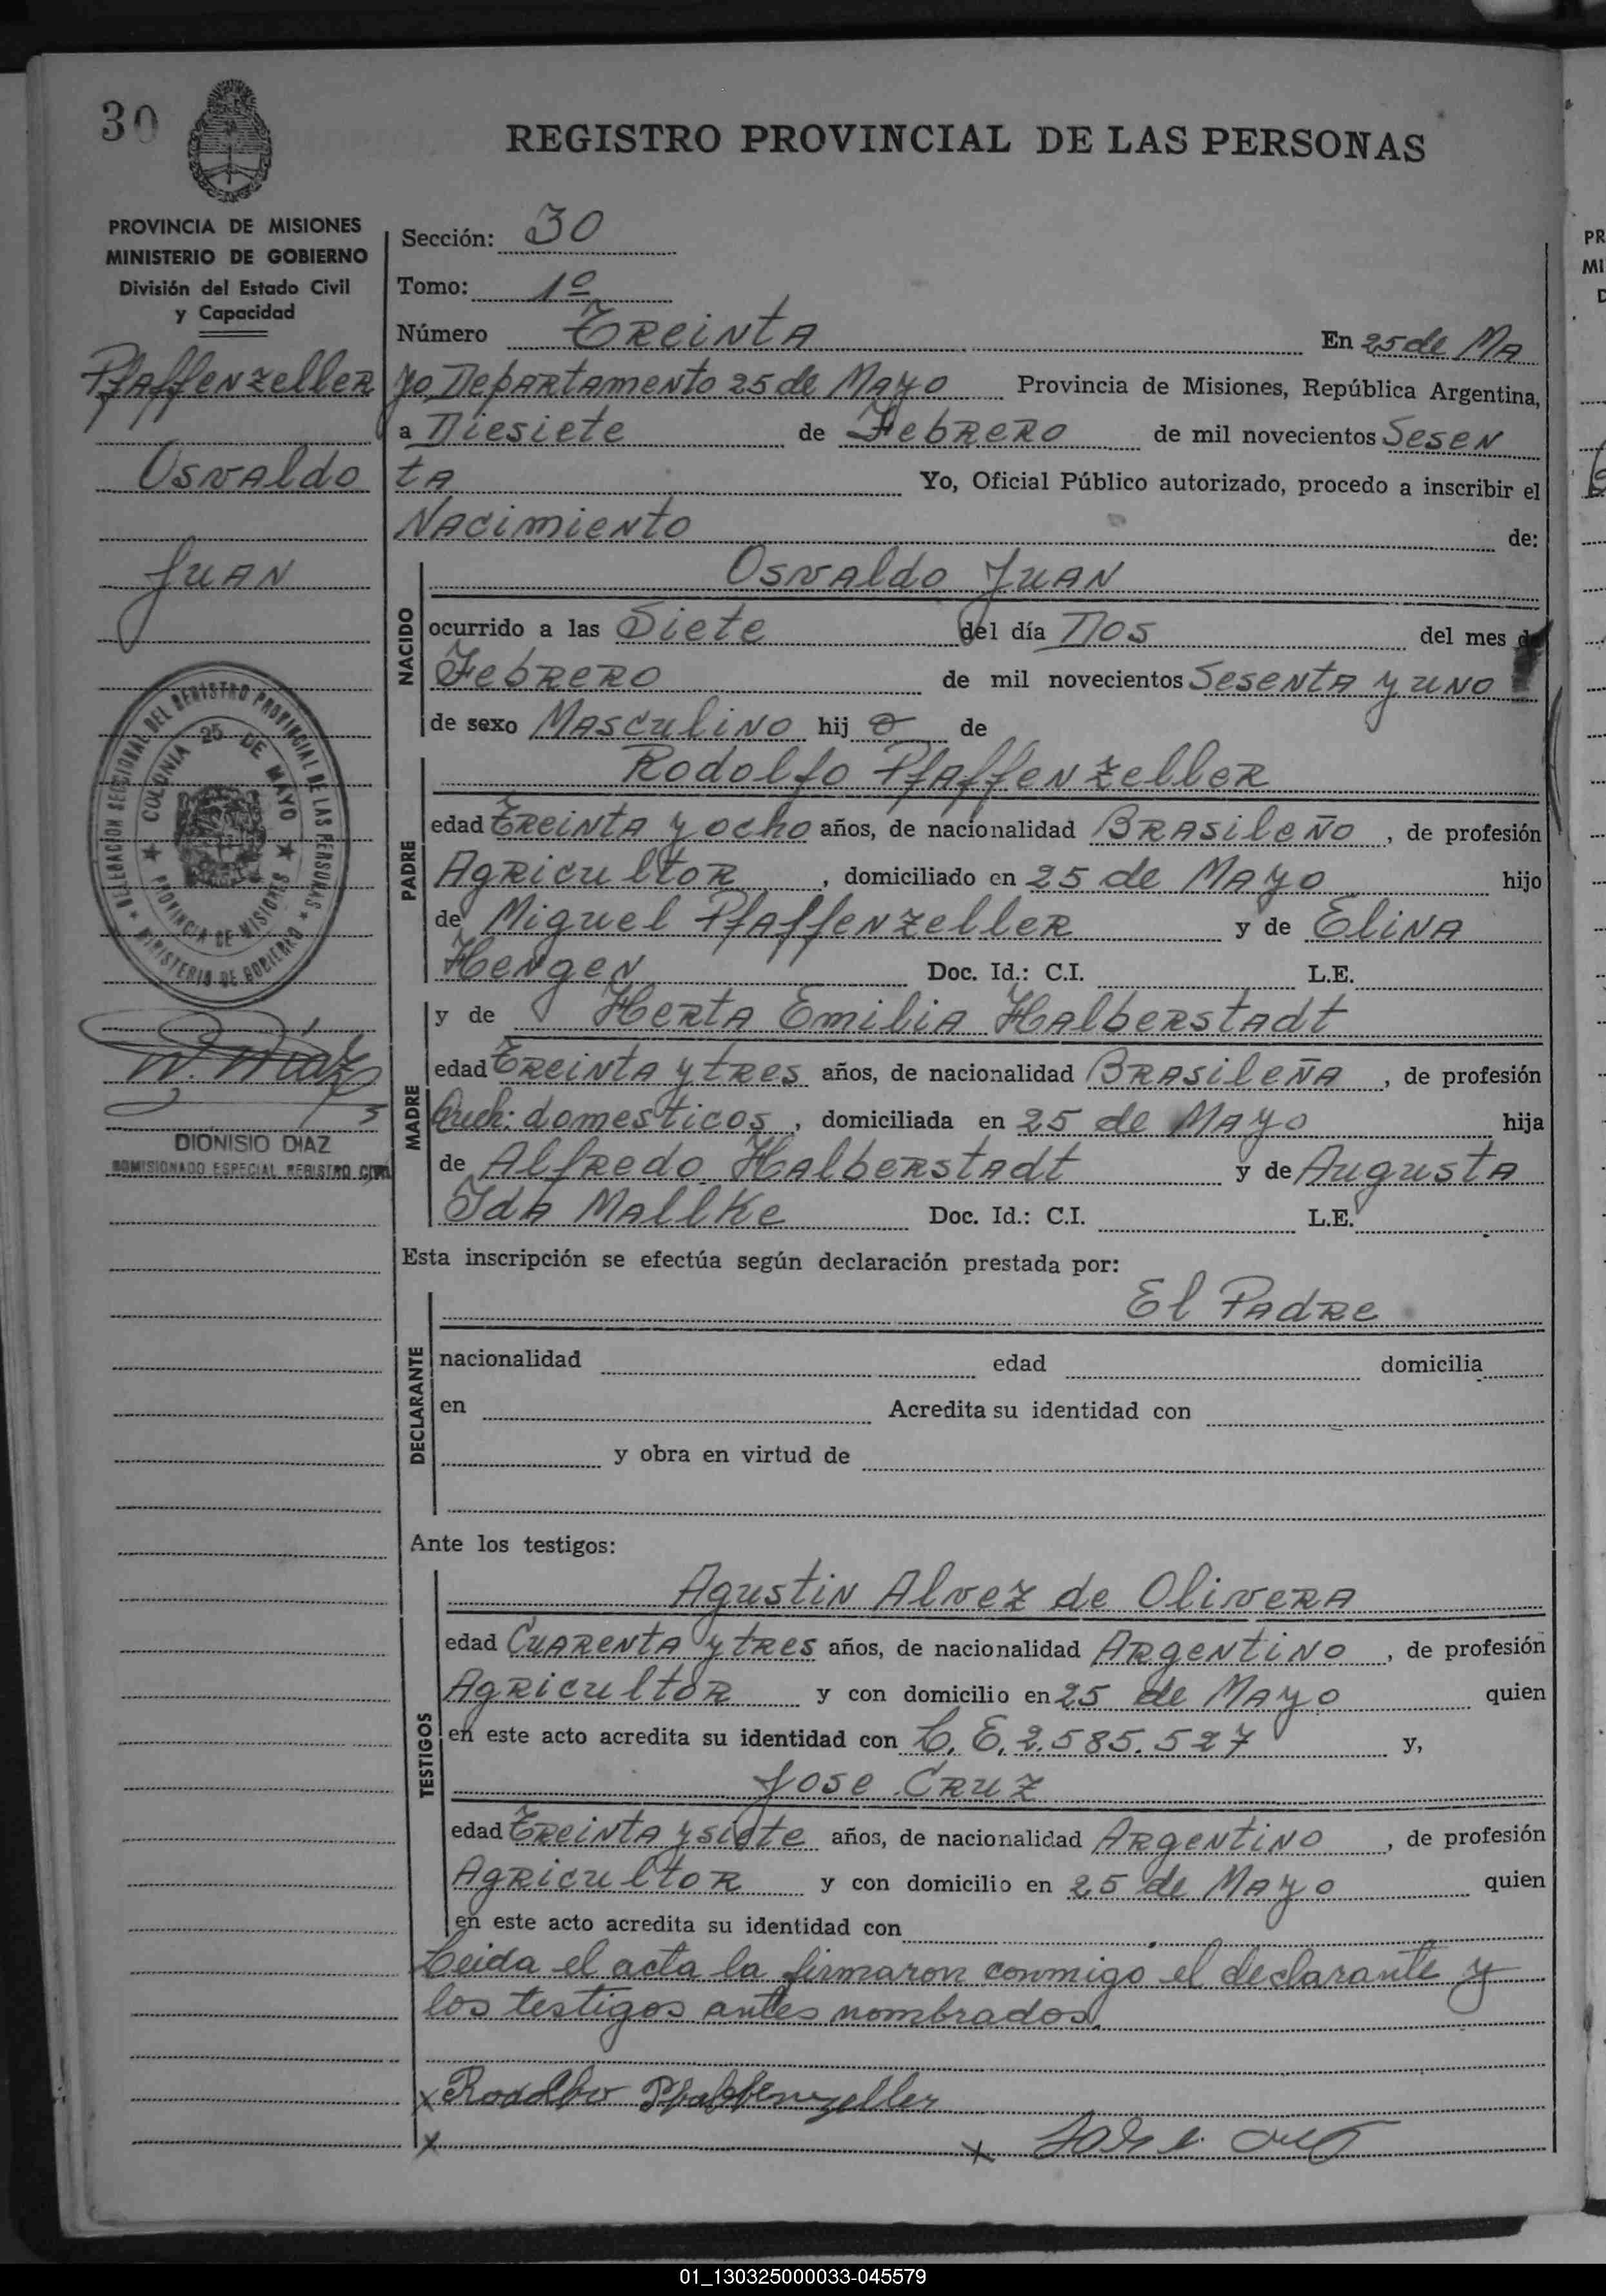 30
REGISTRO PROVINCIAL DE LAS PERSONAS
PROVINCIA DE MISIONES
MINISTERIO DE GOBIERNO
División del Estado Civil
y Capacidad
Pfaffenzeller
Osvaldo
Juan
DELEGACION SECCIONAL DEL REGISTRO PROVINCIAL DE LAS PERSONAS
MINISTERIO DE GOBIERNO
COLONIA 25 DE MAYO
PROVINCIA DE MISIONES
D. Diaz
DIONISIO DIAZ
COMISIONADO ESPECIAL REGISTRO CIVIL
Sección: 30
Tomo: 1º
Número Treinta En 25 de Ma
yo Departamento 25 de Mayo Provincia de Misiones, República Argentina,
a Diesiete de Febrero de mil novecientos Sesen
ta Yo, Oficial Público autorizado, procedo a inscribir el
Nacimiento de:
NACIDO
Osvaldo Juan
ocurrido a las Siete del día Dos del mes de
Febrero de mil novecientos Sesenta y uno
de sexo Masculino hij o de
PADRE
Rodolfo Pfaffenzeller
edad Treinta y ocho años, de nacionalidad Brasileño, de profesión
Agricultor, domiciliado en 25 de Mayo hijo
de Miguel Pfaffenzeller y de Elina
Hengen Doc. Id.: C.I. L.E.
MADRE
y de Herta Emilia Halberstadt
edad Treinta y tres años, de nacionalidad Brasileña, de profesión
Queh: domesticos, domiciliada en 25 de Mayo hija
de Alfredo Halberstadt y de Augusta
Ida Mallke Doc. Id.: C.I. L.E.
Esta inscripción se efectúa según declaración prestada por:
DECLARANTE
El Padre
nacionalidad edad domicilia
en Acredita su identidad con
y obra en virtud de
Ante los testigos:
TESTIGOS
Agustin Alvez de Olivera
edad Cuarenta y tres años, de nacionalidad Argentino, de profesión
Agricultor y con domicilio en 25 de Mayo quien
en este acto acredita su identidad con L.E. 2.585.527 y,
Jose Cruz
edad Treinta y siete años, de nacionalidad Argentino, de profesión
Agricultor y con domicilio en 25 de Mayo quien
en este acto acredita su identidad con
Leida el acta la firmaron conmigo el declarante y
los testigos antes nombrados.
x Rodolfo Pfaffenzeller
x x Jose Cruz
PR
MI
D
01_130325000033-045579